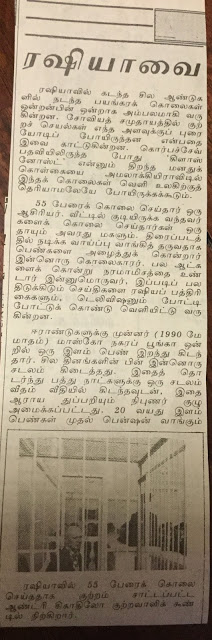 ரஷியாவை
ரஷியாவில் கடந்த சில ஆண்டுக
ளில் நடந்த பயங்கரக் கொலைகள்
ஒன்றன்பின் ஒன்றாக அம்பலமாகி வரு
கின்றன. சோவியத் சமுதாயத்தில் குற்
றச் செயல்கள் எந்த அளவுக்குப் புரை
யோடிப் போயிருந்தன என்பதை
இவை காட்டுகின்றன. கொர்பச்சேவ்
பதவியிலிருந்த போது கிளாஸ்
னோஸ்ட் என்னும் திறந்த மனதுக்
கொள்கையை அமலாக்கியிராவிடில்
இந்தக் கொலைகள் வெளி உலகிற்குத்
தெரியாமலேயே போயிருக்கக்கூடும்.
55 பேரைக் கொலை செய்தார் ஒரு
ஆசிரியர். வீட்டில் குடியிருக்க வந்தவர்
களைக் கொலை செய்தார்கள் ஒரு
தாயும் அவரது மகளும். திரைப்படத்
தில் நடிக்க வாய்ப்பு வாங்கித் தருவதாக
பெண்களை அழைத்துக் கொன்றார்
இன்னொரு கொலைகாரர். பல ஆட்க
ளைக் கொன்று நரமாமிசத்தை உண்
டார் இன்னுமொருவர். இப்படிப் பல
திடுக்கிடும் செய்திகளை ரஷியப் பத்திரி
கைகளும், டெலிவிஷனும் போட்டி
போட்டுக் கொண்டு வெளியிட்டு வரு
கின்றன.
ஈராண்டுகளுக்கு முன்னர் (1990 மே
மாதம்) மாஸ்கோ நகரப் பூங்கா ஒன்
றில் ஒரு இளம் பெண் இறந்து கிடந்
தார். சில தினங்களின் பின் இன்னொரு
சடலம் கிடைத்தது. இதைத் தொ
டர்ந்து பத்து நாட்களுக்கு ஒரு சடலம்
வீதம் வீதியில் கிடந்தவுடன், இதை
ஆராய துப்பறியும் நிபுணர் குழு
அமைக்கப்பட்டது. 20 வயது இளம்
பெண்கள் முதல் பென்ஷன் வாங்கும்
ரஷியாவில் 55 பேரைக் கொலை
செய்ததாக குற்றம் சாட்டப்பட்ட
ஆண்ட்ரி கிகாதிலோ குற்றவாளிக் கூண்
டில் நிற்கிறார்.